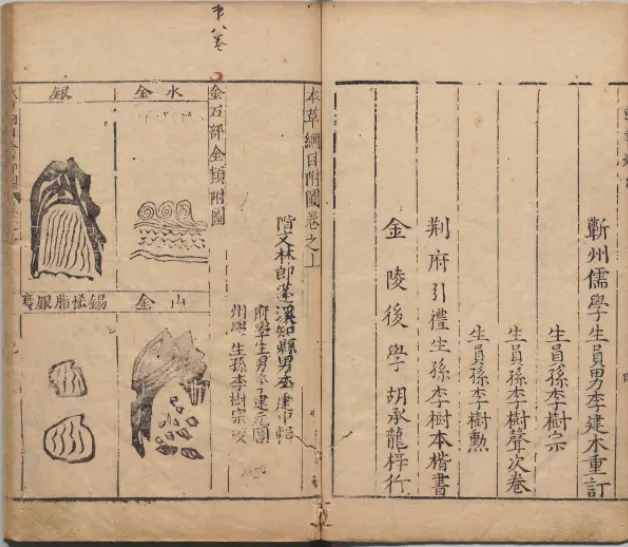 蘄州儒學生員男李建木重訂
生員孫李樹宗
生員孫李樹聲次卷
生員孫李樹勲
荆府引禮生孫李樹本楷書
金陵後學胡承龍梓行
第八卷
本草綱目附圖卷之上
階文林郎蓬溪知縣男李建中輯
府學生男李建元圖
州學生孫李樹宗校
金石部金類附圖
水金
銀
山金
錫恡脂銀